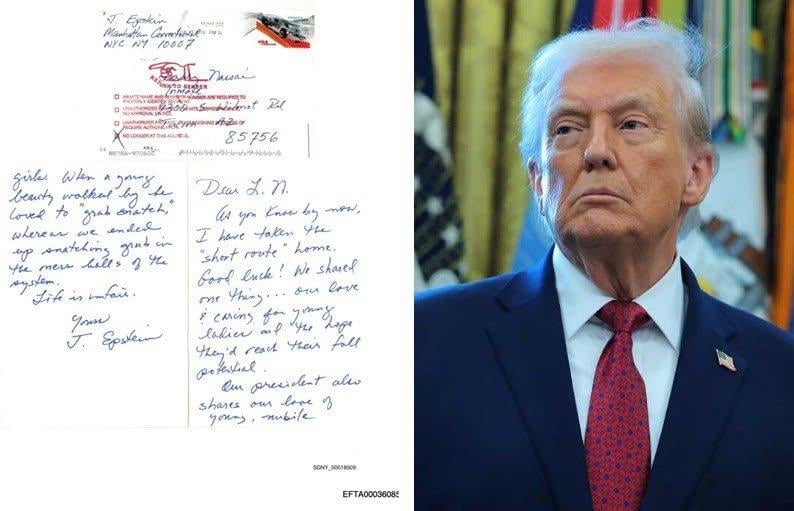 J. Epstein
Manhattan Correctional
NYC NY 10007
PM
RETURN TO SENDER
Larry Nassar
Inmate
INMATE NAME AND NUMBER ARE REQUIRED TO
PROPERLY IDENTIFY RECIPIENT
9300 S. Wilmot Rd
UNAUTHORIZED
NO APPROVAL ON FILE.
UNAUTHORIZED
REQUIRE AUTHORIZATION
Tucson AZ
NO LONGER AT THIS ADDRESS.
85756
Dear L. N.
As you know by now,
I have taken the
"short route" home.
Good luck! We shared
one thing... our love
& caring for young
ladies and the hope
they'd reach their full
potential.
Our president also
shares our love of
young, nubile
girls. When a young
beauty walked by he
loved to "grab snatch,"
whereas we ended
up snatching grub in
the mess halls of the
system.
Life is unfair.
Yours
J. Epstein
SDNY_00018009
EFTA00036085